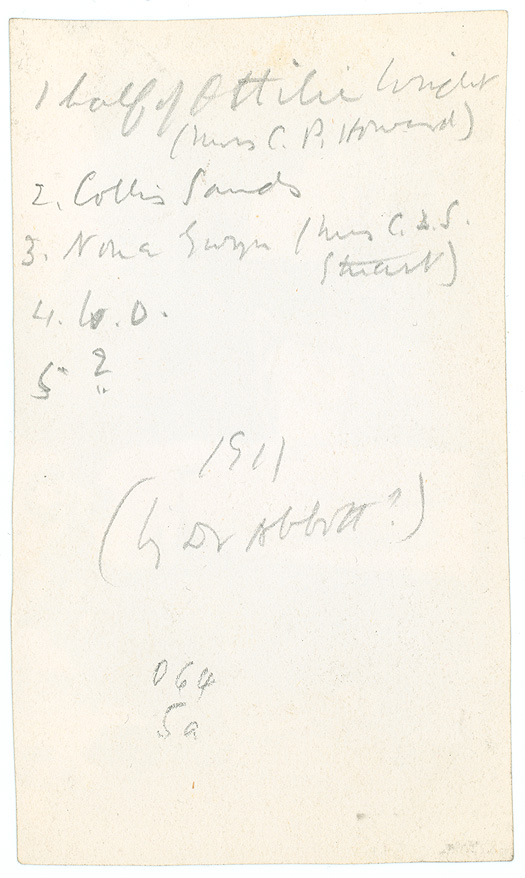 1 half of Ottilie Wright
(Mrs C. P. Howard)
2. Collis Sands
3. Nona Gwyn (Mrs C. D. S.
Stuart)
4. W. D.
5 ?
1911
(by Dr Abbott?)
064
5a